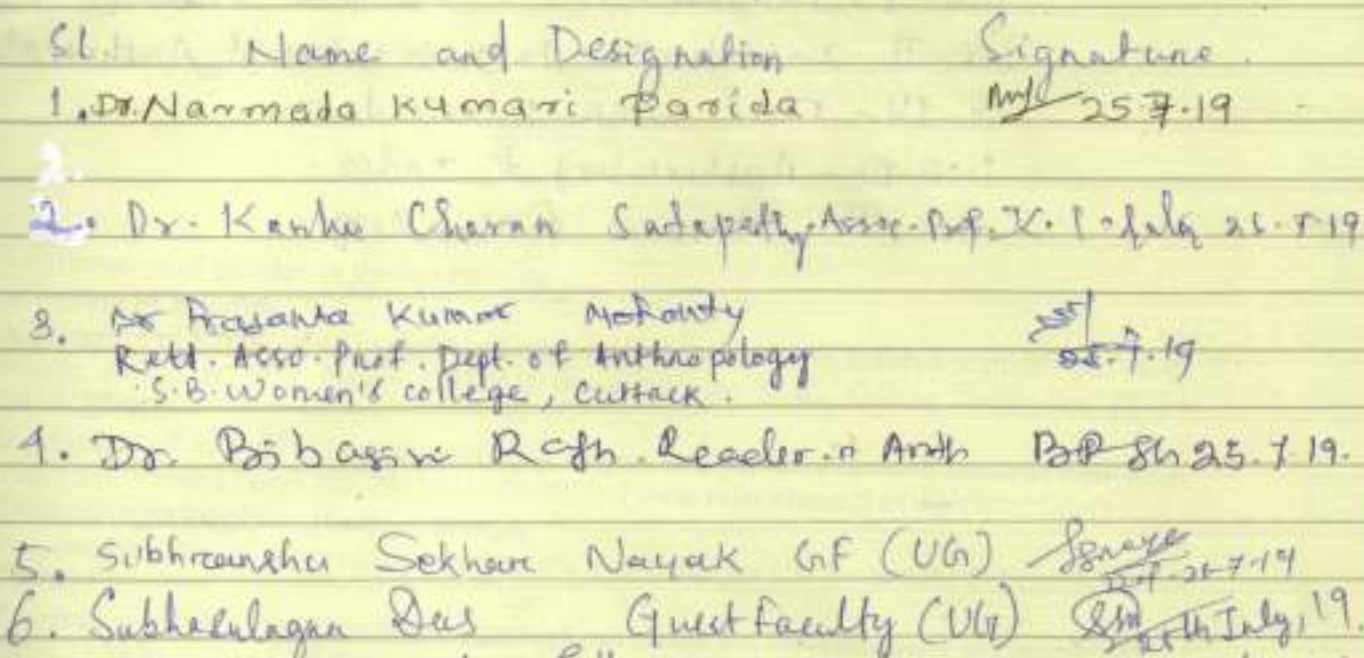 SL. Name and Designation Signature.
1. Dr. Narmada Kumari Parida 25.7.19
2.
2. Dr. Kanhu Charan Satapathy, Assoc. Prof. 25.7.19
3. Dr Prasanta Kumar Mohanty 25.7.19
Retd. Asso. Prof. Dept. of Anthropology
S.B. Women's college, Cuttack.
4. Dr. Rath Reader in Anth 25.7.19.
5. Subhranshu Sekhar Nayak GF (UG) 25-7-19
6. Das Guest Faculty (UG) 25th July, 19.